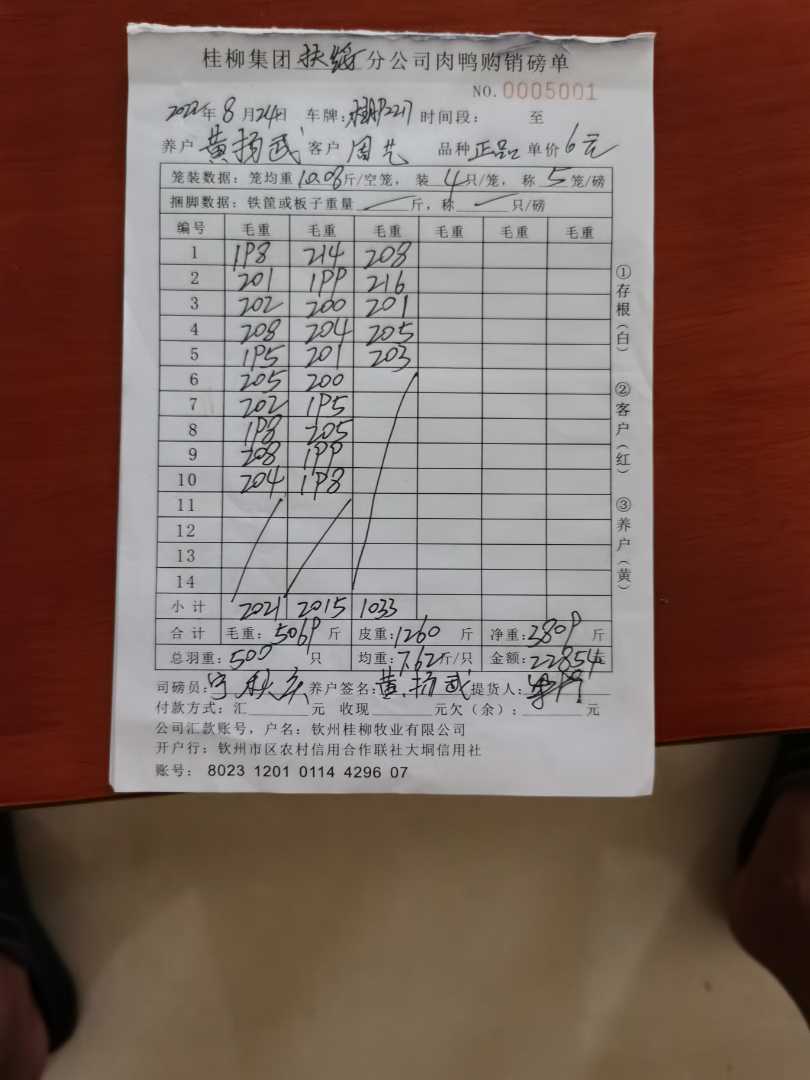 桂柳集团扶绥分公司肉鸭购销磅单
NO.0005001
2022年8月24日 车牌: 时间段: 至
养户黄扬武 客户周艺 品种正品 单价6元
笼装数据:笼均重10.08斤/空笼,装4只/笼,称5笼/磅
捆脚数据:铁筐或板子重量 斤,称 只/磅
编号 毛重 毛重 毛重 毛重 毛重 毛重
1 198 214 208
2 201 199 216
3 202 200 201
4 208 204 205
5 195 201 203
6 205 200
7 202 195
8 198 205
9 208 199
10 204 198
11
12
13
14
小计 2021 2015 1033
合计 毛重:5069斤 皮重:1260斤 净重:3809斤
总羽重:500只 均重:7.62斤/只 金额:22854元
司磅员: 养户签名:黄扬武 提货人:
付款方式:汇 元 收现 元欠(余): 元
公司汇款账号,户名:钦州桂柳牧业有限公司
开户行:钦州市区农村信用合作联社大垌信用社
账号:8023 1201 0114 4296 07
①存根(白)
②客户(红)
③养户(黄)